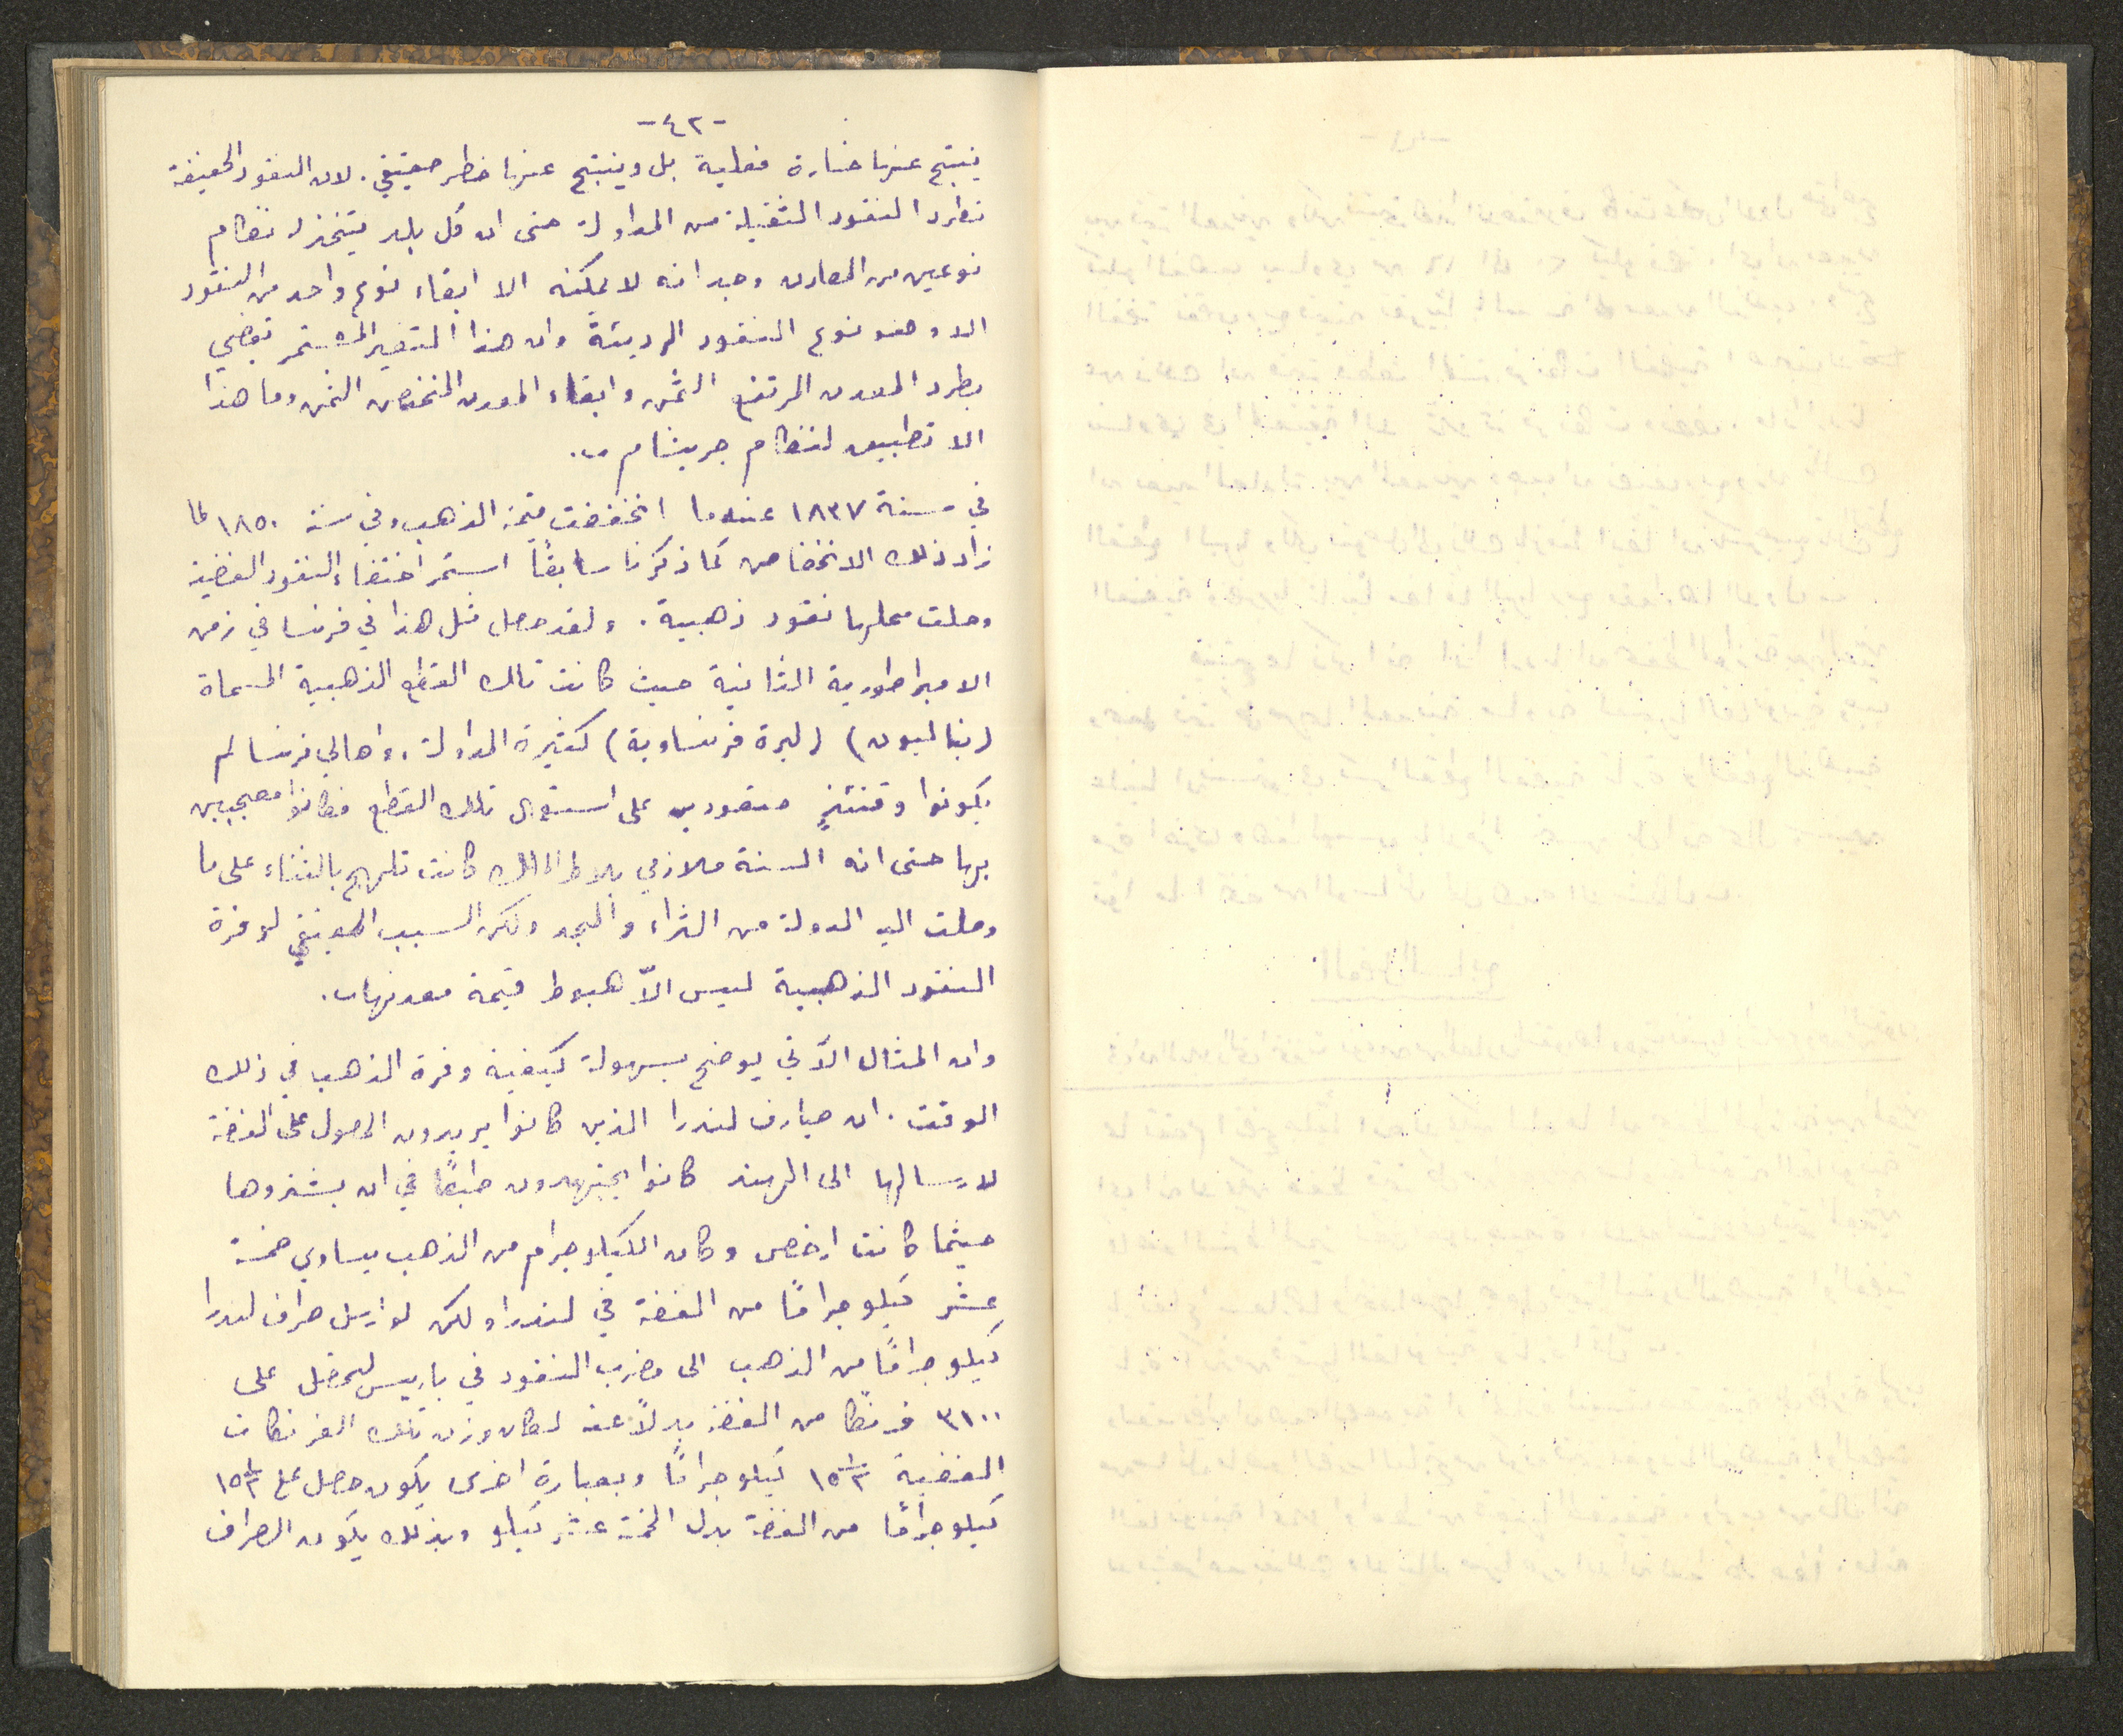 -٤٢-
ينتج عنها خسارة فعلية بل وينتج عنها خطر حقيقي. لان النقود الخفيفة
تطرد النقود الثقيلة من المداولة حتى ان كل بلد يتخذ نظام
نوعين من المعادن وجد انه لا يمكنه الا ابقاء نوع واحد من النقود
الا وهو نوع النقود الرديئة وان هذا التغير المستمر يقضي
بطرد المعدن المرتفع الثمن وابقاء المعدن المنخفض الثمن وما هذا
الا تطبيق لنظام جريشام.
في سنة ١٨٣٧ عندما انخفضت قيمة الذهب وفي سنة ١٨٥٠ لما
زاد ذلك الانخفاض كما ذكرنا سابقاً استمر اختفاء النقود الفضية
وحلت محلها نقود ذهبية. ولقد حصل مثل هذا في فرنسا في زمن
الامبراطورية الثانية حيث كانت تلك القطع الذهبية المسماة
(بنالبون) (ليرة فرنساوية) كثيرة المداولة. واهالي فرنسا لم
يكونوا وقتئذٍ متعودين على استعمال تلك القطع فكانوا معجبين
بها حتى انه السنة ملازمي بلاط الملك كانت تلهج بالثناء على ما
وصلت اليه الدولة من الثراء والمجد ولكن السبب الحقيقي لوفرة
النقود الذهبية ليس الاّ هبوط قيمة معدنها.
وان المثال الآتي يوضح بسهولة كيفية وفرة الذهب في ذلك
الوقت. ان صيارف لندرا الذين كانوا يريدون الحصول على الفضة
لارسالها الى الهند كانوا يجتهدون طبعاً في ان يشتروها
حيثما كانت ارخص وكان الكيلوجرام من الذهب يساوي خمسة
عشر كيلو جراماً من الفضة في لندرا ولكن لو ارسل صراف لندرا
كيلو جراماً من الذهب الى مضرب النقود في باريس ليحصل على
٣١٠٠ فرنكا من الفضة بدلاً عنه لكان وزن تلك الفرنكات
الفضية ١٥ ١/٢ كيلو جراماً وبعبارة اخرى يكون حصل على ١٥ ١/٢
كيلو جراماً من الفضة بدل الخمسة عشر كيلو وبذلك يكون الصراف